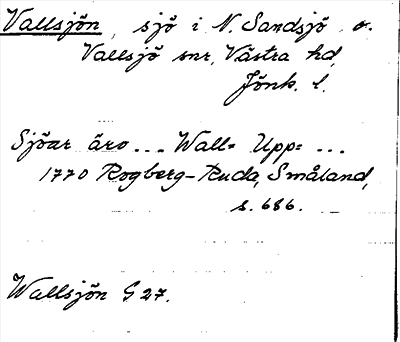 Vallsjön, sjö i N. Sandsjö o.
Vallsjö snr, Västra hd,
Jönk. l.
Sjöar äro ... Wall= Upp= ...
1770 Rogberg-Ruda, Småland,
s. 686.
Wallsjön G 27.